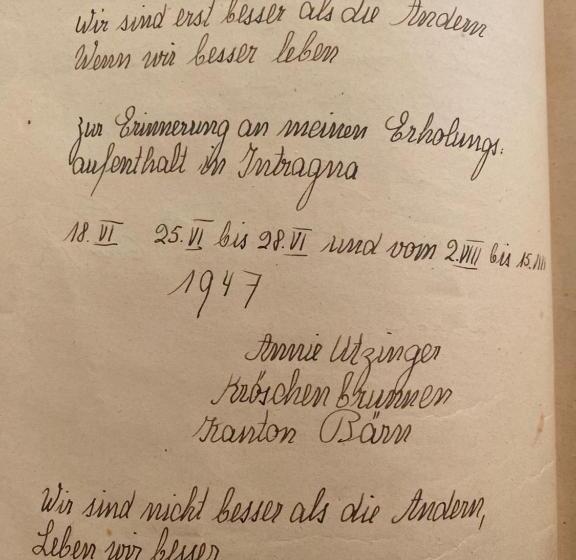 Wir sind erst besser als die Andern
Wenn wir besser leben
Zur Erinnerung an meinen Erholungs:
aufenthalt in Intragna
18. VI 25. VI bis 28. VI und vom 2. VIII bis 15.
1947
Annie Utzinger
Kröschenbrunnen
Kanton Bärn
Wir sind nicht besser als die Andern,
Leben wir besser